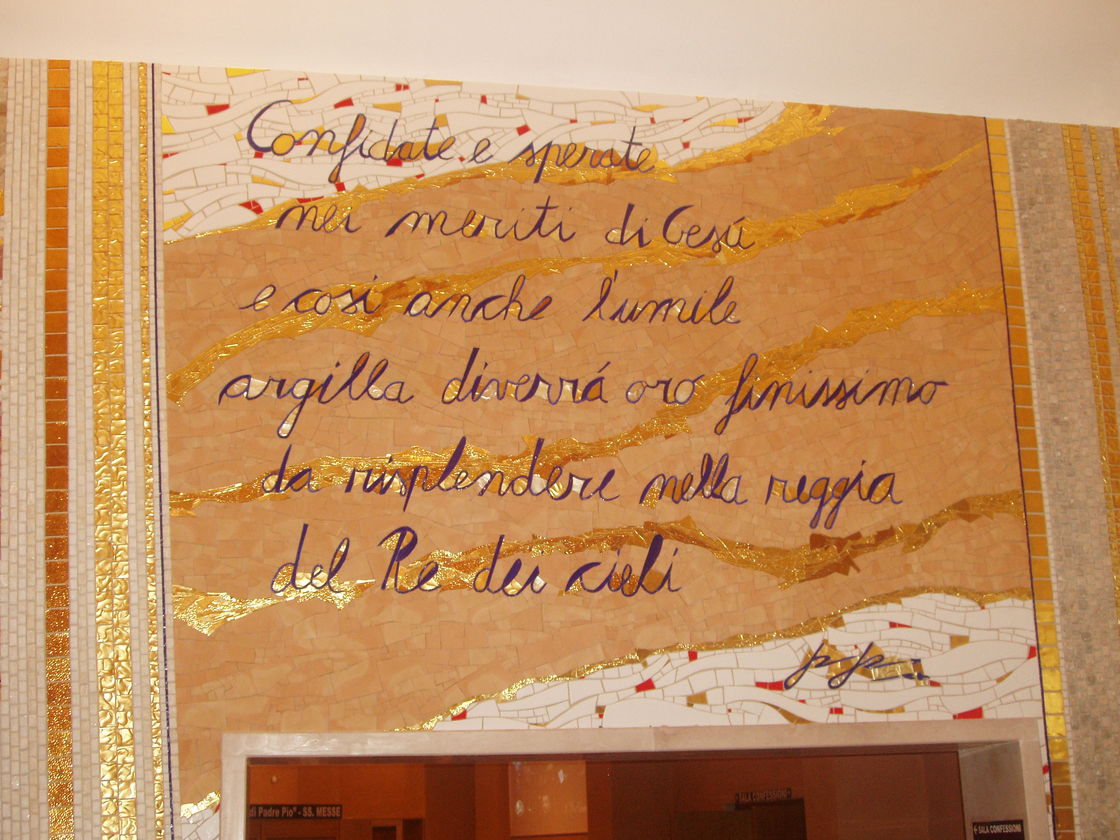 Confidate e sperate
nei meriti di Gesú
e cosí anche l'umile
argilla diverrá oro finissimo
da risplendere nella reggia
del Re dei cieli
di Padre Pio" - SS. MESSE
SALA CONFESSIONI
SALA CONFESSIONI